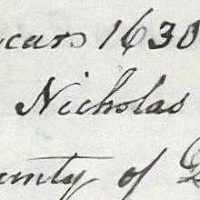 years 1630
Nicholas
County of